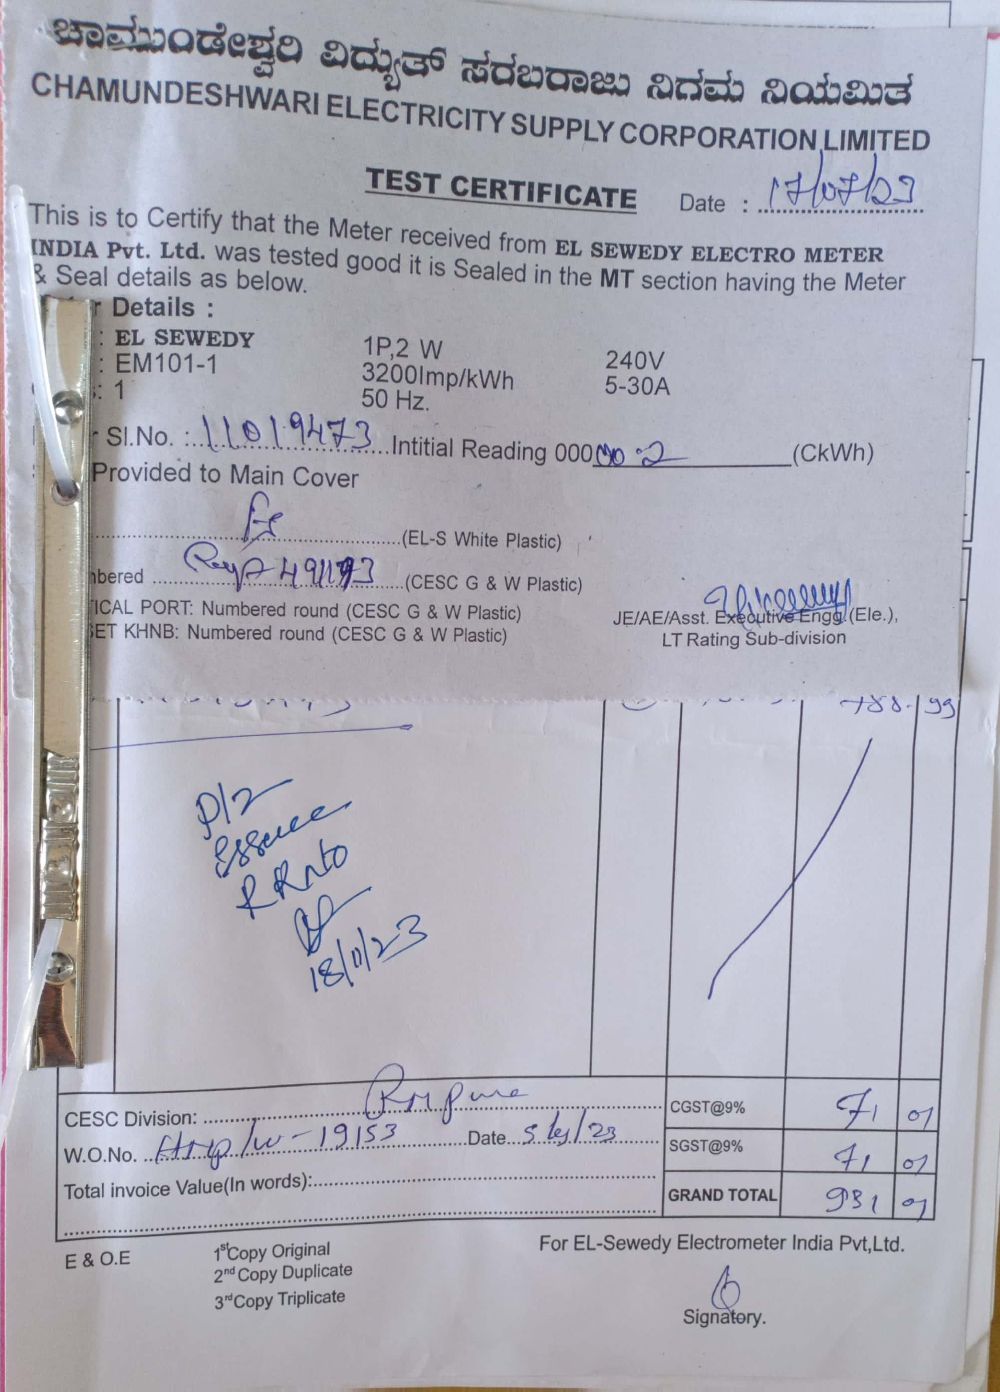 ಚಾಮುಂಡೇಶ್ವರಿ ವಿದ್ಯುತ್ ಸರಬರಾಜು ನಿಗಮ ನಿಯಮಿತ
CHAMUNDESHWARI ELECTRICITY SUPPLY CORPORATION LIMITED
TEST CERTIFICATE Date : 17/07/23
This is to Certify that the Meter received from EL SEWEDY ELECTRO METER
INDIA Pvt. Ltd. was tested good it is Sealed in the MT section having the Meter
& Seal details as below.
r Details :
: EL SEWEDY 1P,2 W 240V
: EM101-1 3200Imp/kWh 5-30A
: 1 50 Hz.
Sl.No. : 11019473 Intitial Reading 00000.2 (CkWh)
Provided to Main Cover
(EL-S White Plastic)
nbered 491193 (CESC G & W Plastic)
ICAL PORT: Numbered round (CESC G & W Plastic)
SET KHNB: Numbered round (CESC G & W Plastic)
JE/AE/Asst. Executive Engg.(Ele.),
LT Rating Sub-division
788.99
P/2
Essuee
RRnto
18/11/23
CESC Division:
W.O.No. 19153 Date
Total invoice Value(In words):
CGST@9% 71 01
SGST@9% 71 01
GRAND TOTAL 931 01
E & O.E
1st Copy Original
2nd Copy Duplicate
3rd Copy Triplicate
For EL-Sewedy Electrometer India Pvt,Ltd.
Signatory.